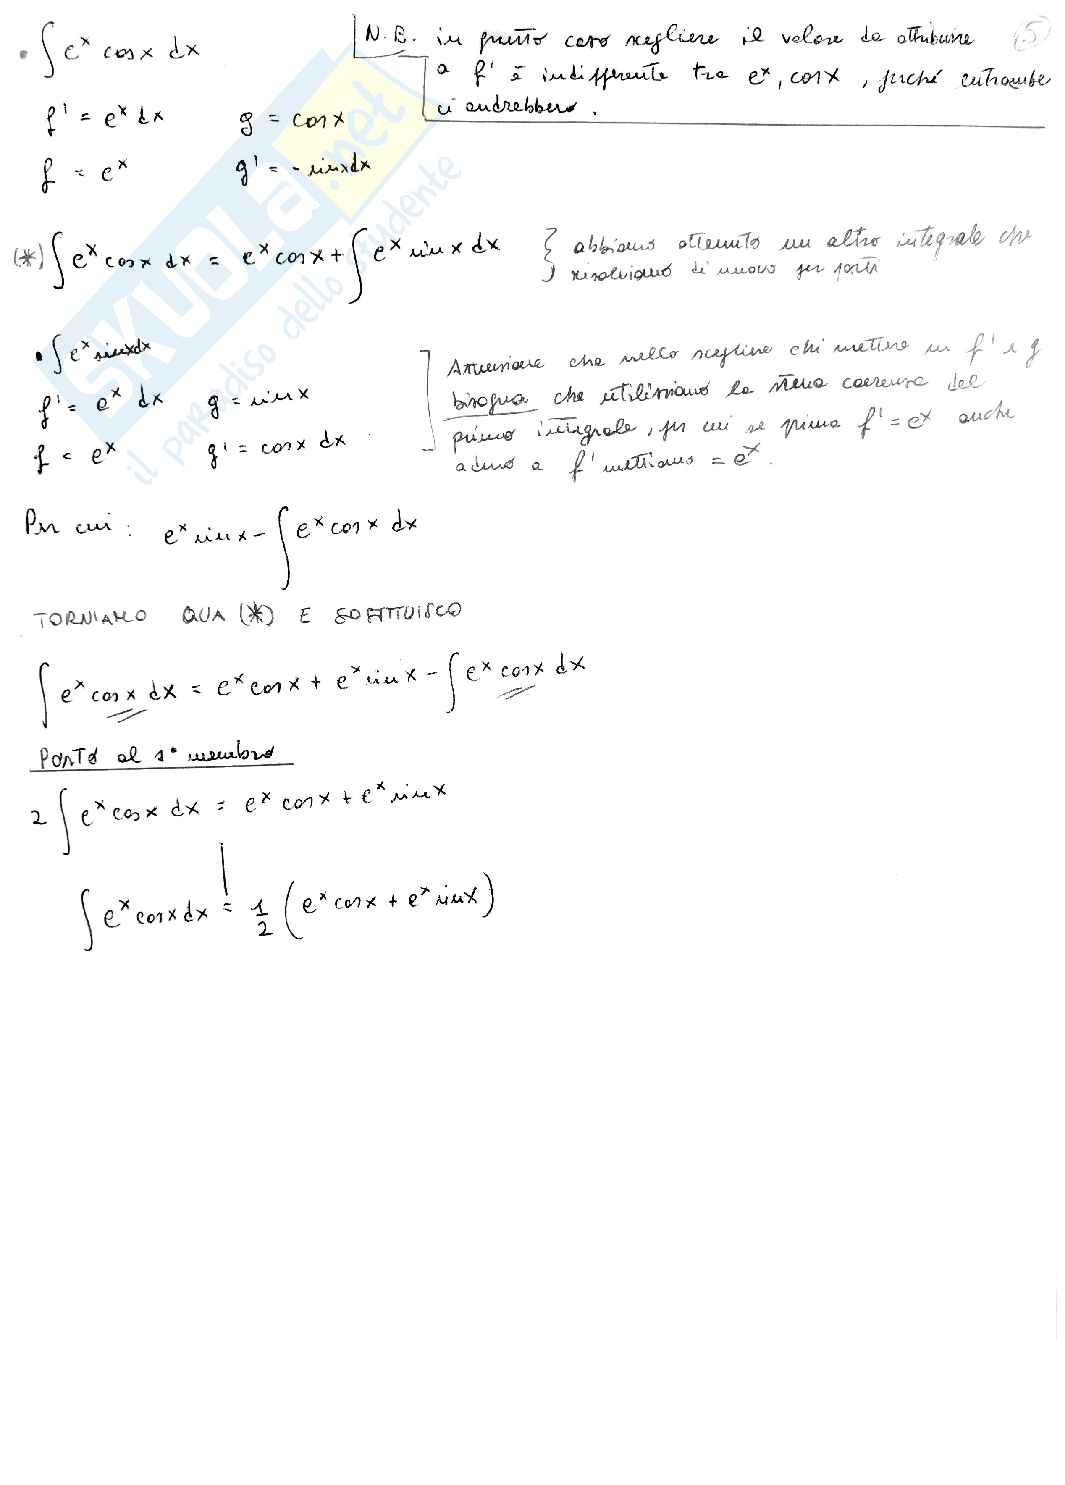 • ∫ e^x cos x dx
N.B. in questo caso scegliere il valore da attribuire
a f' è indifferente tra e^x, cos x, perché entrambe
ci andrebbero.
5
f' = e^x dx g = cos x
f = e^x g' = - sin x dx
(*) ∫ e^x cos x dx = e^x cos x + ∫ e^x sin x dx
abbiamo ottenuto un altro integrale che
risolviamo di nuovo per parti
• ∫ e^x sin x dx
f' = e^x dx g = sin x
f = e^x g' = cos x dx
Attenzione che nello scegliere chi mettere in f' e g
bisogna che utilizziamo la stessa coerenza del
primo integrale, per cui se prima f' = e^x anche
adesso a f' mettiamo = e^x.
Per cui: e^x sin x - ∫ e^x cos x dx
TORNIAMO QUA (*) E SOSTITUISCO
∫ e^x cos x dx = e^x cos x + e^x sin x - ∫ e^x cos x dx
PORTO al 1° membro
2 ∫ e^x cos x dx = e^x cos x + e^x sin x
∫ e^x cos x dx = 1/2 (e^x cos x + e^x sin x)
SKUOLA.net
il paradiso dello studente